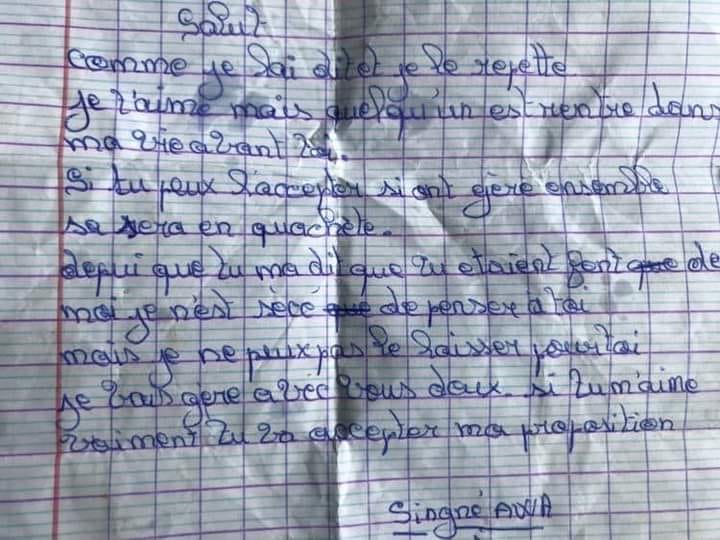 Salut
comme je lai dit et je le repette
je t'aime mais quelqu'un est rentre dans
ma vie avant toi.
Si tu peux l'accepter si ont gère ensemble
sa sera en quachète.
depui que tu ma dit que tu etaient gont de
moi je n'est sècé de penser a toi
mais je ne peux pas le laisser pour toi
je vais gere avèc vous daux. si tu m'aime
vraiment tu va accepter ma proposition
Singné AWA